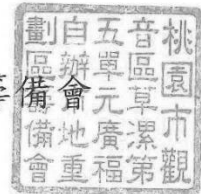 備會
桃園市觀
音區草漯第
五單元廣福
自辦地重
劃區籌備會